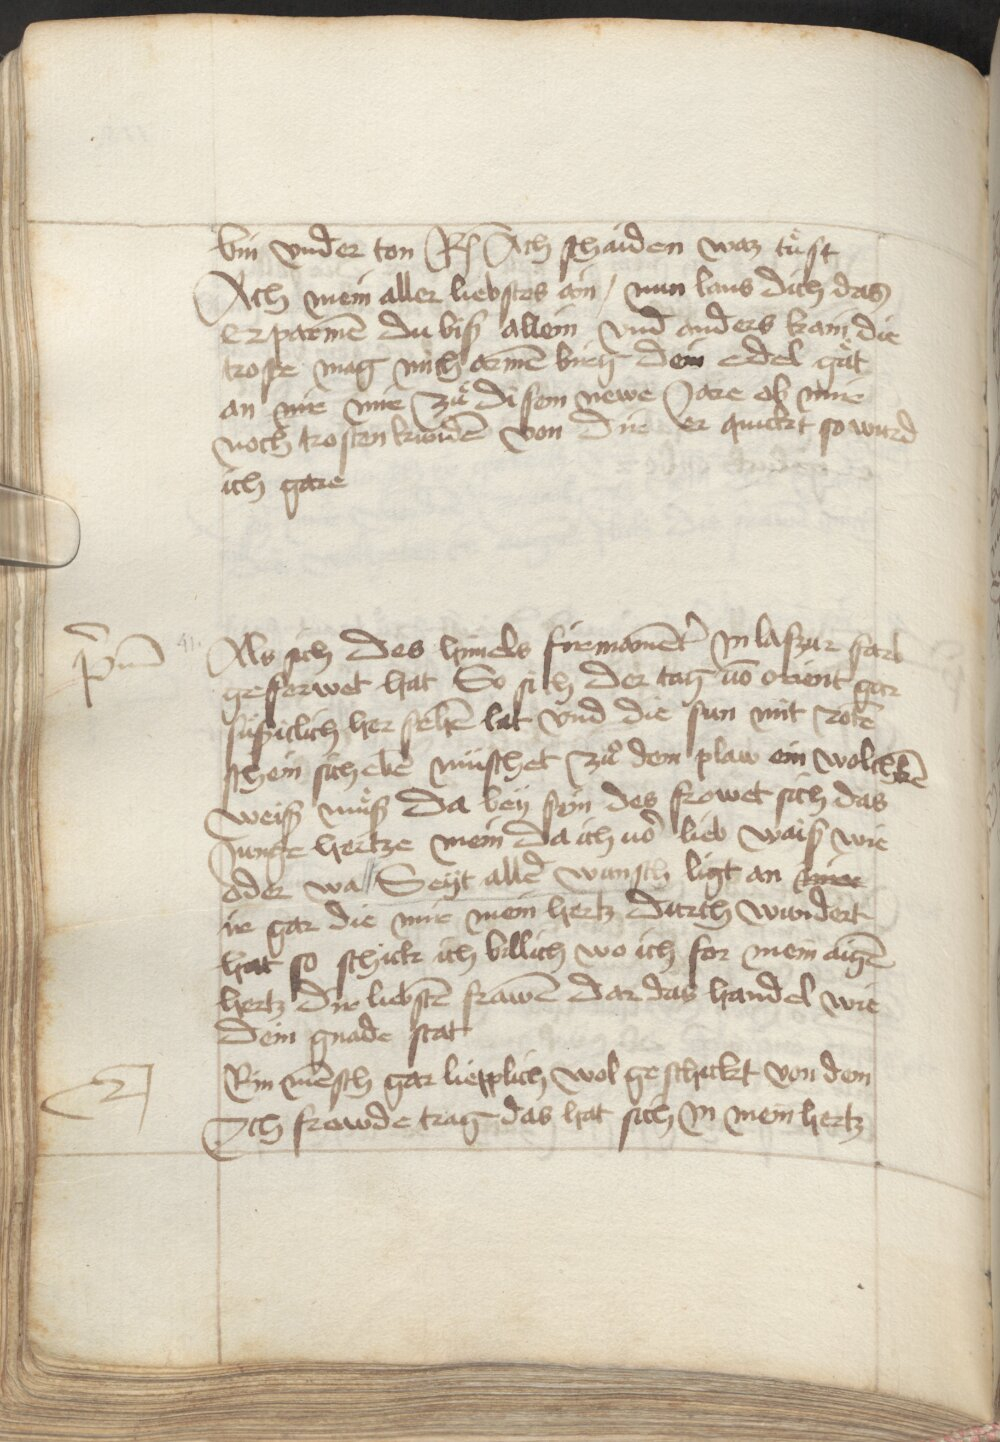 bin vnder ton R Ach schaiden waz tuͤst
Ach mein aller liebstes ain / nun laus dich das
erparmē du bist allein vnd anders kain die
trost mag mich armē dein edel guͤt
an mir zuͤ disem newe Jare ob mir
noch trosten von dir er quickt so wurd
ich gare
pm̄ 41. Als sich des himels firmamēt In lasur farb
gefferwet hat So sich der tag vō orient gar
her sehē lat vnd die sun mit rotē
schein sich ebē muschet zuͦ dem plaw ein wolckē
weiss muͤss da bey sin des frowet sich das
Junge hertze mein da ich vō lieb waiss wie
oder wa // Seyt aller wunsch ligt an
ir gar die mir mein hertz durch wundert
hat so schick ich billich wo ich for mein aigē
hertz der liebstē frawē dar das handel wie
dein gnade stat
2 Ein mēsch gar liepplich wol geschickt von dem
Ich frawde trag das hat sich In mein hertz